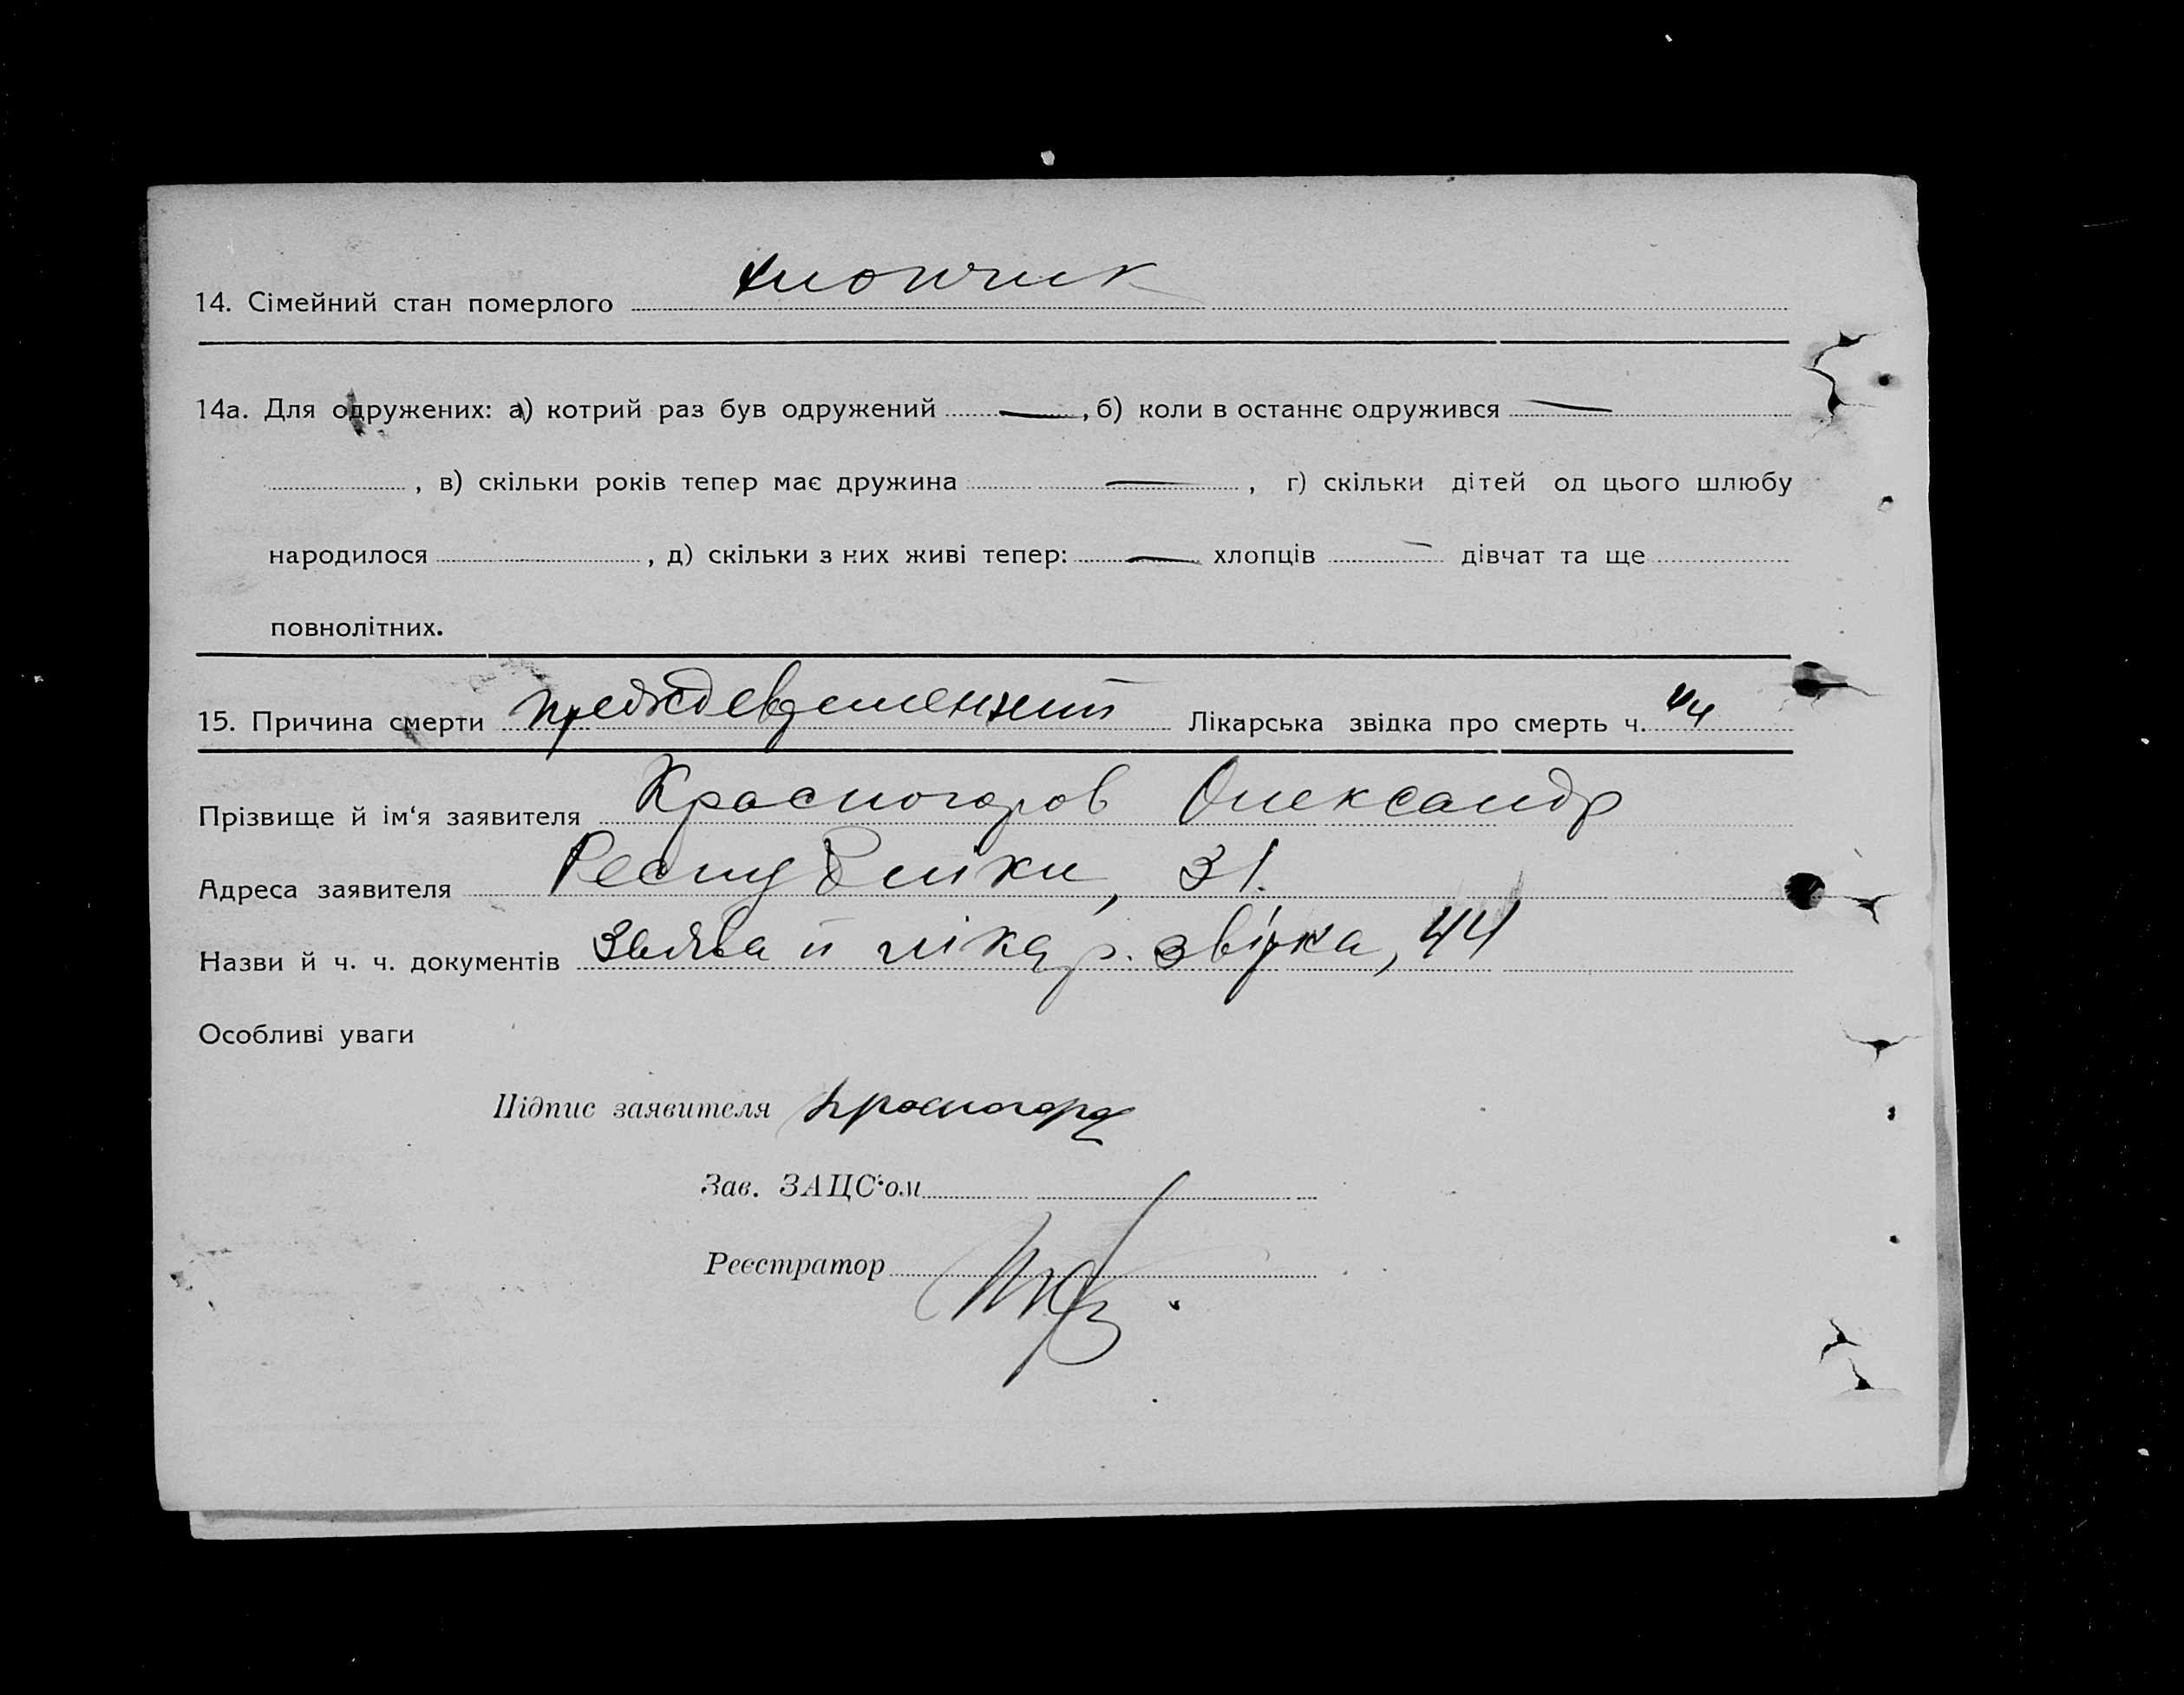 14. Сімейний стан померлого хлопчик
14а. Для одружених: а) котрий раз був одружений — , б) коли в останнє одружився —
, в) скільки років тепер має дружина — , г) скільки дітей од цього шлюбу
народилося , д) скільки з них живі тепер: — хлопців — дівчат та ще
повнолітних.
15. Причина смерти преждевременний Лікарська звідка про смерть ч. 44
Прізвище й ім'я заявителя Красногоров Олександр
Адреса заявителя Республіки, 31.
Назви й ч. ч. документів Заява й лікар. звідка, 44
Особливі уваги
Підпис заявителя
Зав. ЗАЦС'ом
Реєстратор